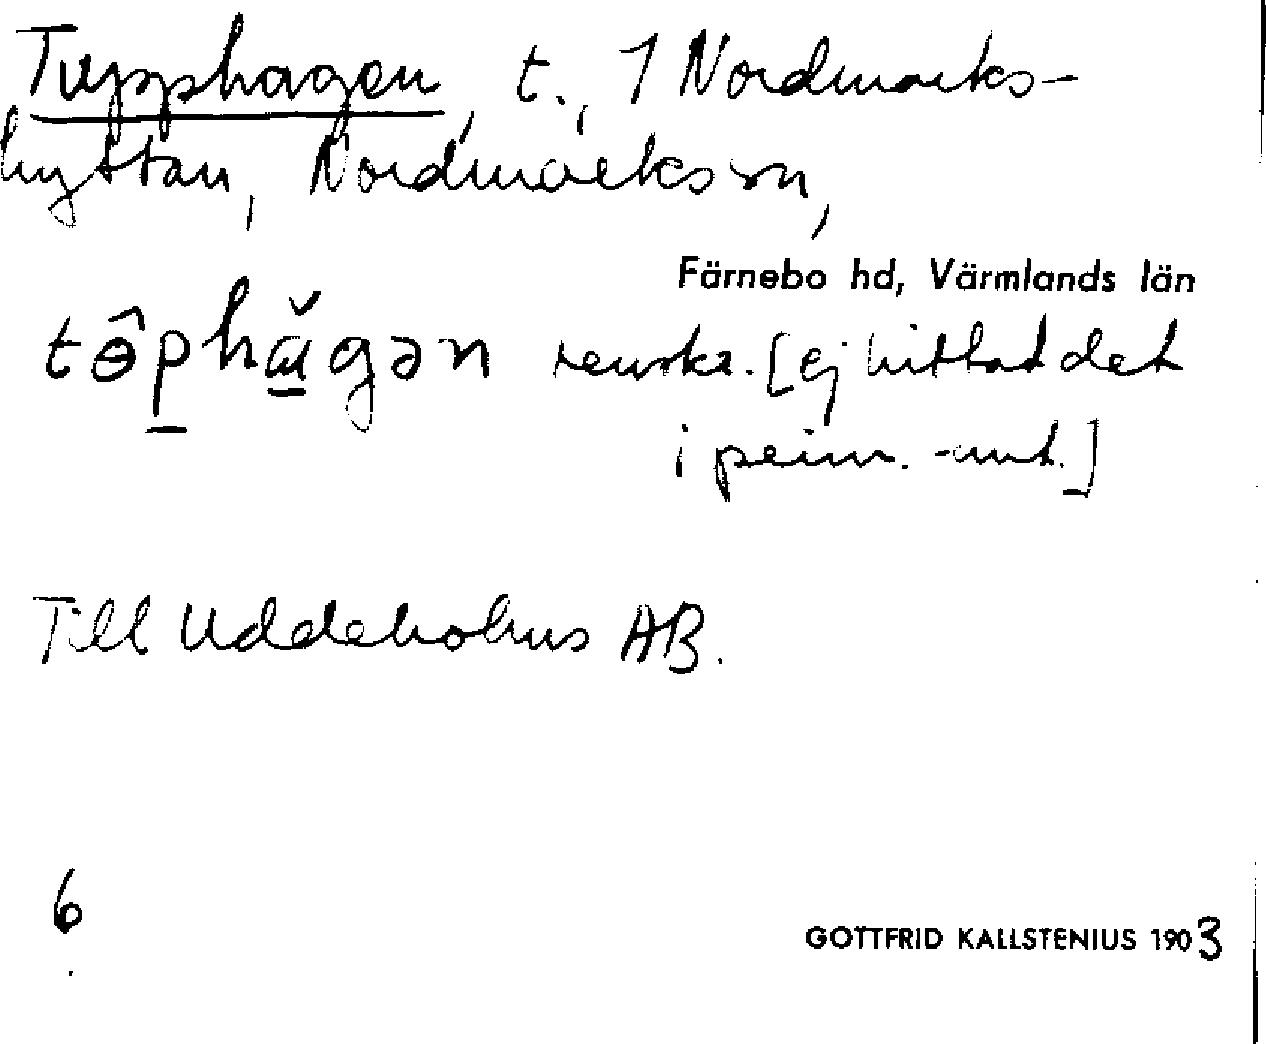 Tupphagen, t., 1 Nordmarks-
hyttan, Nordmarks sn,
Färnebo hd, Värmlands län
tɵ̂phɑ̌gən renskr. [ej hittat det
i prim.-ant.]
Till Uddeholms AB.
6
GOTTFRID KALLSTENIUS 1903